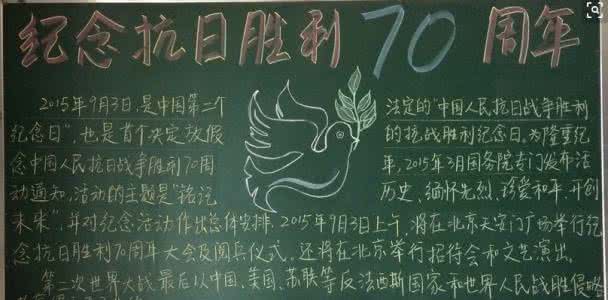 纪念抗日胜利70周年
2015年9月3日,是中国第二个法定的"中国人民抗日战争胜利
纪念日",也是首个决定放假的抗战胜利纪念日。为隆重纪
念中国人民抗日战争胜利70周年,2015年3月国务院专门发布活
动通知,活动的主题是"铭记历史、缅怀先烈、珍爱和平、开创
未来",并对纪念活动作出总体安排,2015年9月3日上午,将在北京天安门广场举行纪
念抗日胜利70周年大会及阅兵仪式,还将在北京举行招待会和文艺演出。
第二次世界大战最后以中国、美国、苏联等反法西斯国家和世界人民战胜侵略